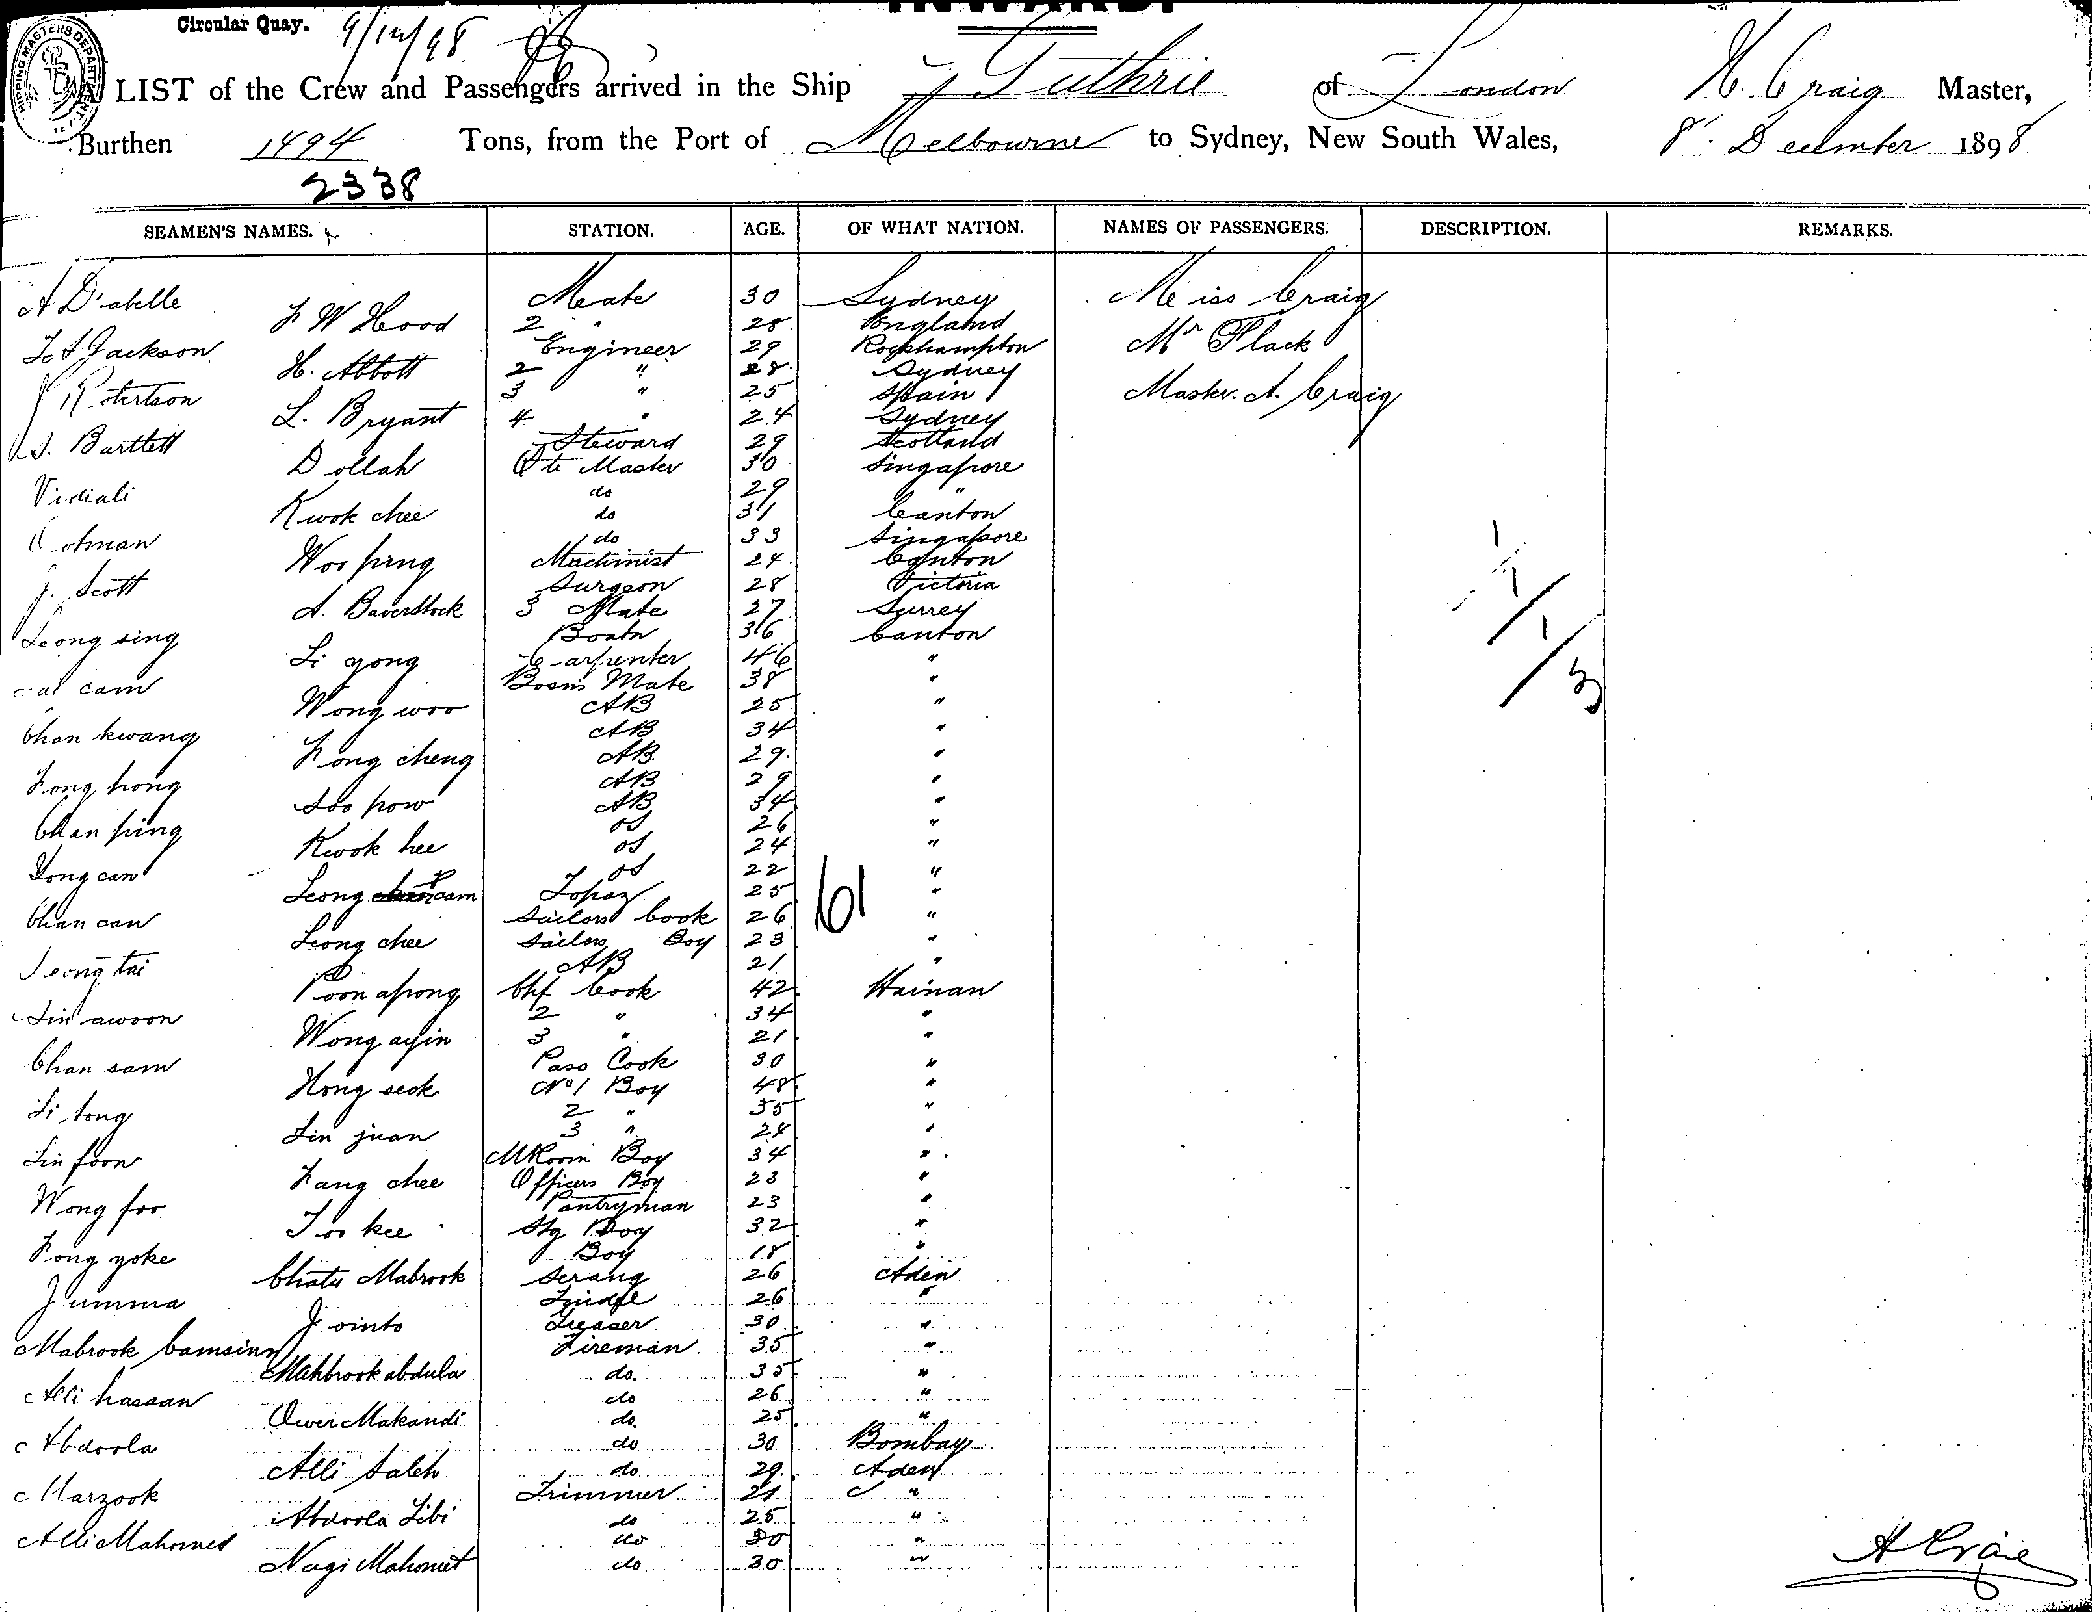 INWARD.
Circular Quay. 9/12/98
LIST of the Crew and Passengers arrived in the Ship Guthrie of London H. Craig Master,
Burthen 1494 Tons, from the Port of Melbourne to Sydney, New South Wales, 8 December 1898
2338
SEAMEN'S NAMES. STATION. AGE. OF WHAT NATION. NAMES OF PASSENGERS. DESCRIPTION. REMARKS.
Mate 30 Sydney Miss Craig
F W Hood 2 " 28 England
Jackson Engineer 29 Rockhampton Mr Flack
H. Abbott 2 " 28 Sydney
Robertson 3 " 25 Spain Master. A. Craig
L. Bryant 4 " 24 Sydney
Bartlett Steward 29 Scotland
Dollah Qte Master 30 Singapore
Vidiali do 29 "
Kwok chee do 31 Canton
Ootman do 33 Singapore
Woo ping Machinist 24 Canton
J. Scott Surgeon 28 Victoria
A. Baverstock 3 Mate 27 Surrey
Leong sing Boatn 36 Canton
Li gong Carpenter 46 "
cam Bosns Mate 38 "
Wong woo AB 25 "
Chan kwang AB 34 "
Fong cheng AB 29 "
Fong hong AB 29 "
Soo pow AB 34 "
Chan ping OS 26 "
Kwok hee OS 24 "
Dong can OS 22 "
Leong cam Topaz 25 "
Chan can Sailors Cook 26 "
Leong chee Sailors Boy 23 "
61
Leong tai AB 21 "
Poon apong Chf Cook 42 Hainan
Lin awoon 2 " 34 "
Wong ayin 3 " 21 "
Chan sam Pass Cook 30 "
Hong seok No 1 Boy 48 "
Li tong 2 " 35 "
Lin juan 3 " 28 "
Lin foon MRoom Boy 34 "
Fang chee Officers Boy 23 "
Wong foo Pantryman 23 "
Too kee Stg Boy 32 "
Fong yoke Boy 18 "
Mabrook Serang 26 Aden
Jumma Tindle 26 "
Jointo Greaser 30 "
Mabrook bamsinn Fireman 35 "
Mahbrook abdula do 35 "
Alli hassan do 26 "
Ower Makandi do 25 "
Abdoola do 30 Bombay
Alli Saleh do 29 Aden
Marzook Trimmer 21 "
Abdoola Libi do 25 "
Alli Mahomed do 30 "
Nagi Mahomet do 30 "
H Craig